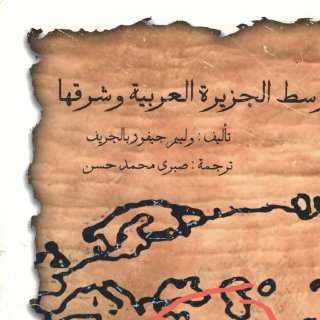 وسط الجزيرة العربية وشرقها
تأليف : وليم جيفور بالجريف
ترجمة : صبرى محمد حسن